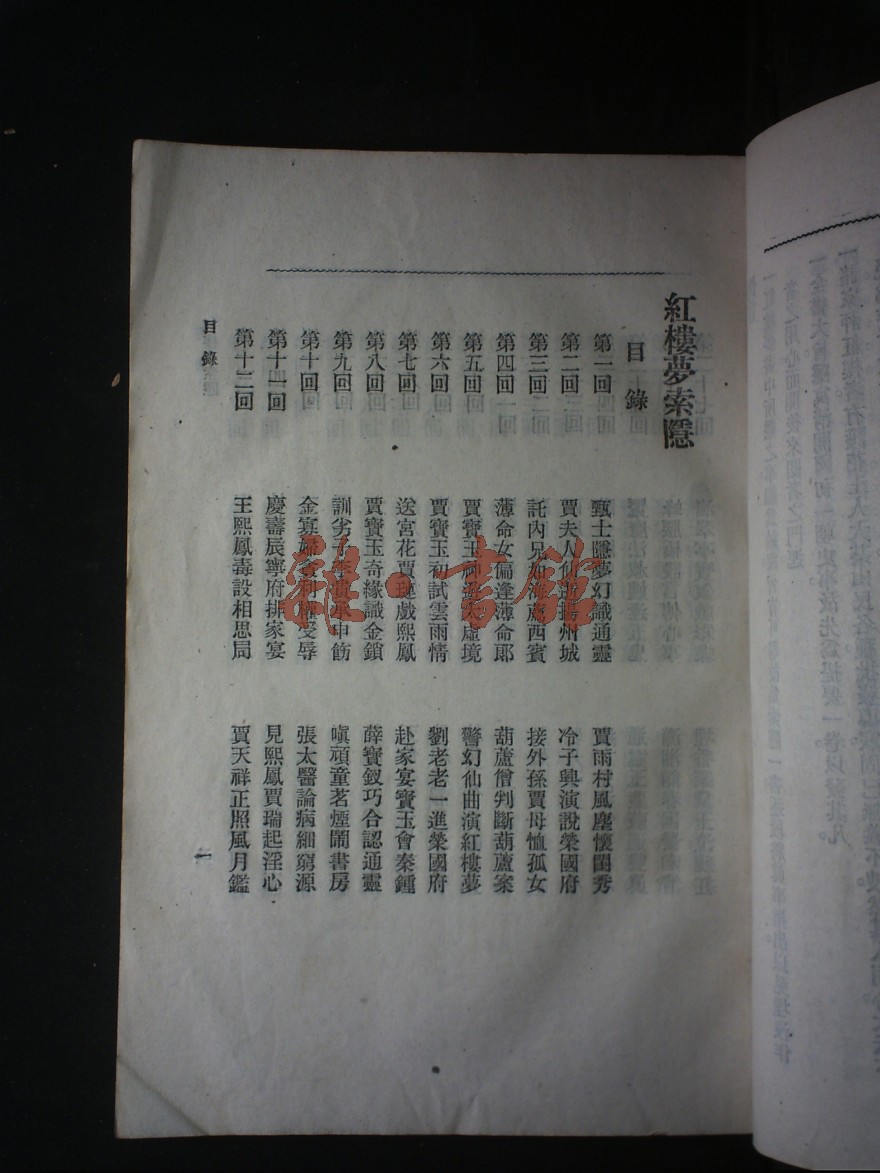 紅樓夢索隱
目錄
第一回 甄士隱夢幻識通靈 賈雨村風塵懷閨秀
第二回 賈夫人仙逝揚州城 冷子興演說榮國府
第三回 託內兄如海薦西賓 接外孫賈母恤孤女
第四回 薄命女偏逢薄命郎 葫蘆僧判斷葫蘆案
第五回 賈寶玉神遊太虛境 警幻仙曲演紅樓夢
第六回 賈寶玉初試雲雨情 劉老老一進榮國府
第七回 送宮花賈璉戲熙鳳 赴家宴寶玉會秦鍾
第八回 賈寶玉奇緣識金鎖 薛寶釵巧合認通靈
第九回 訓劣子李貴承申飭 嗔頑童茗煙鬧書房
第十回 金寡婦貪利權受辱 張太醫論病細窮源
第十一回 慶壽辰寧府排家宴 見熙鳳賈瑞起淫心
第十二回 王熙鳳毒設相思局 賈天祥正照風月鑑
目錄
一
雜·書館